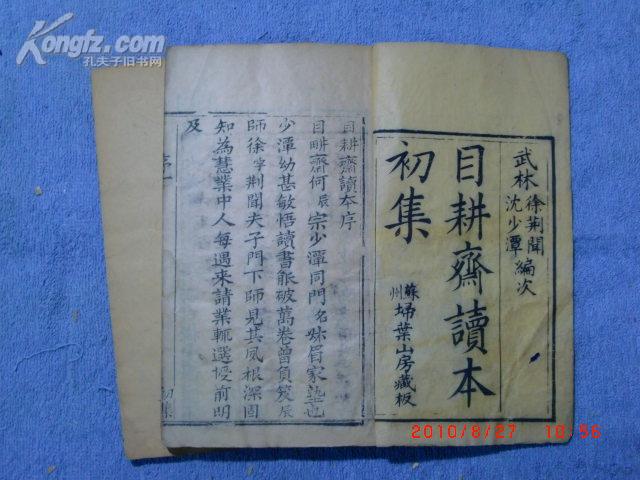 Kongfz.com
孔夫子旧书网
武林徐荆聞沈少潭編次
目耕齋讀本
初集
蘇州埽葉山房藏板
目耕齋讀本序
目畊齋何辰宗少潭同門名味眉家塾也
少潭幼甚敏悟讀書能破萬卷曾負笈辰
師徐寧荆聞夫子門下師見其夙根深固
知為慧業中人每遇來請業輒選授前明
及
序一
初集
2010/8/27 10:56